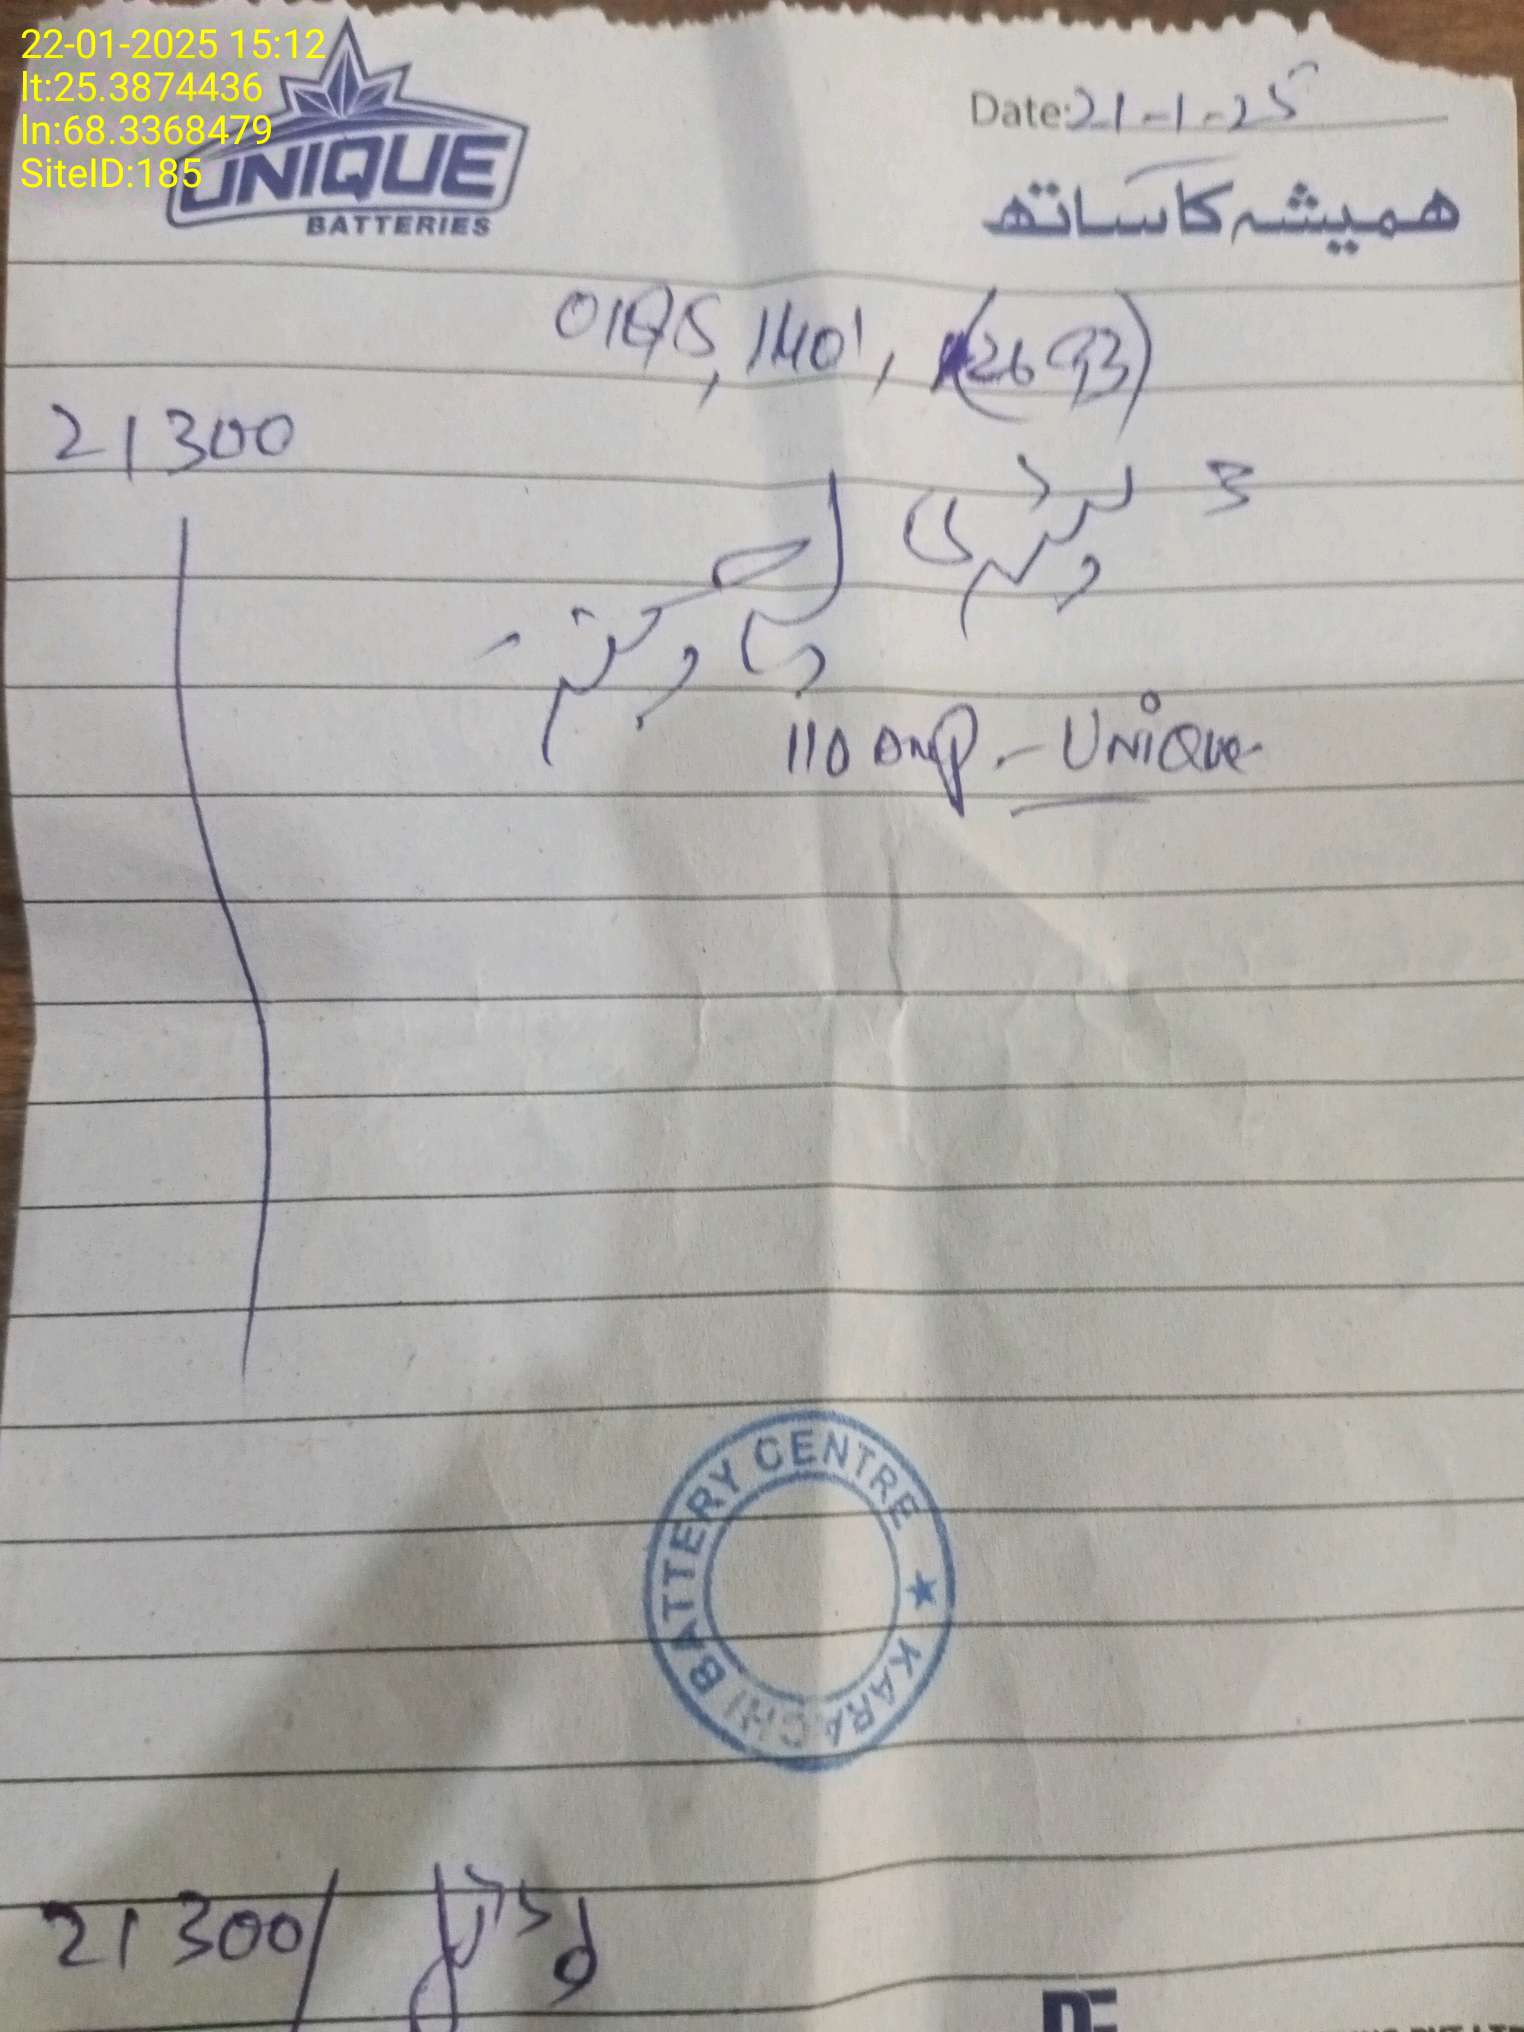 22-01-2025 15:12
lt:25.3874436
ln:68.3368479
SiteID:185
UNIQUE
BATTERIES
Date: 21-1-25
ہمیشہ کا ساتھ
0185, 1401, (2693)
21300
3 بیٹری
110 Amp - UNiQue
KARACHI BATTERY CENTRE
21300/
PVT LT